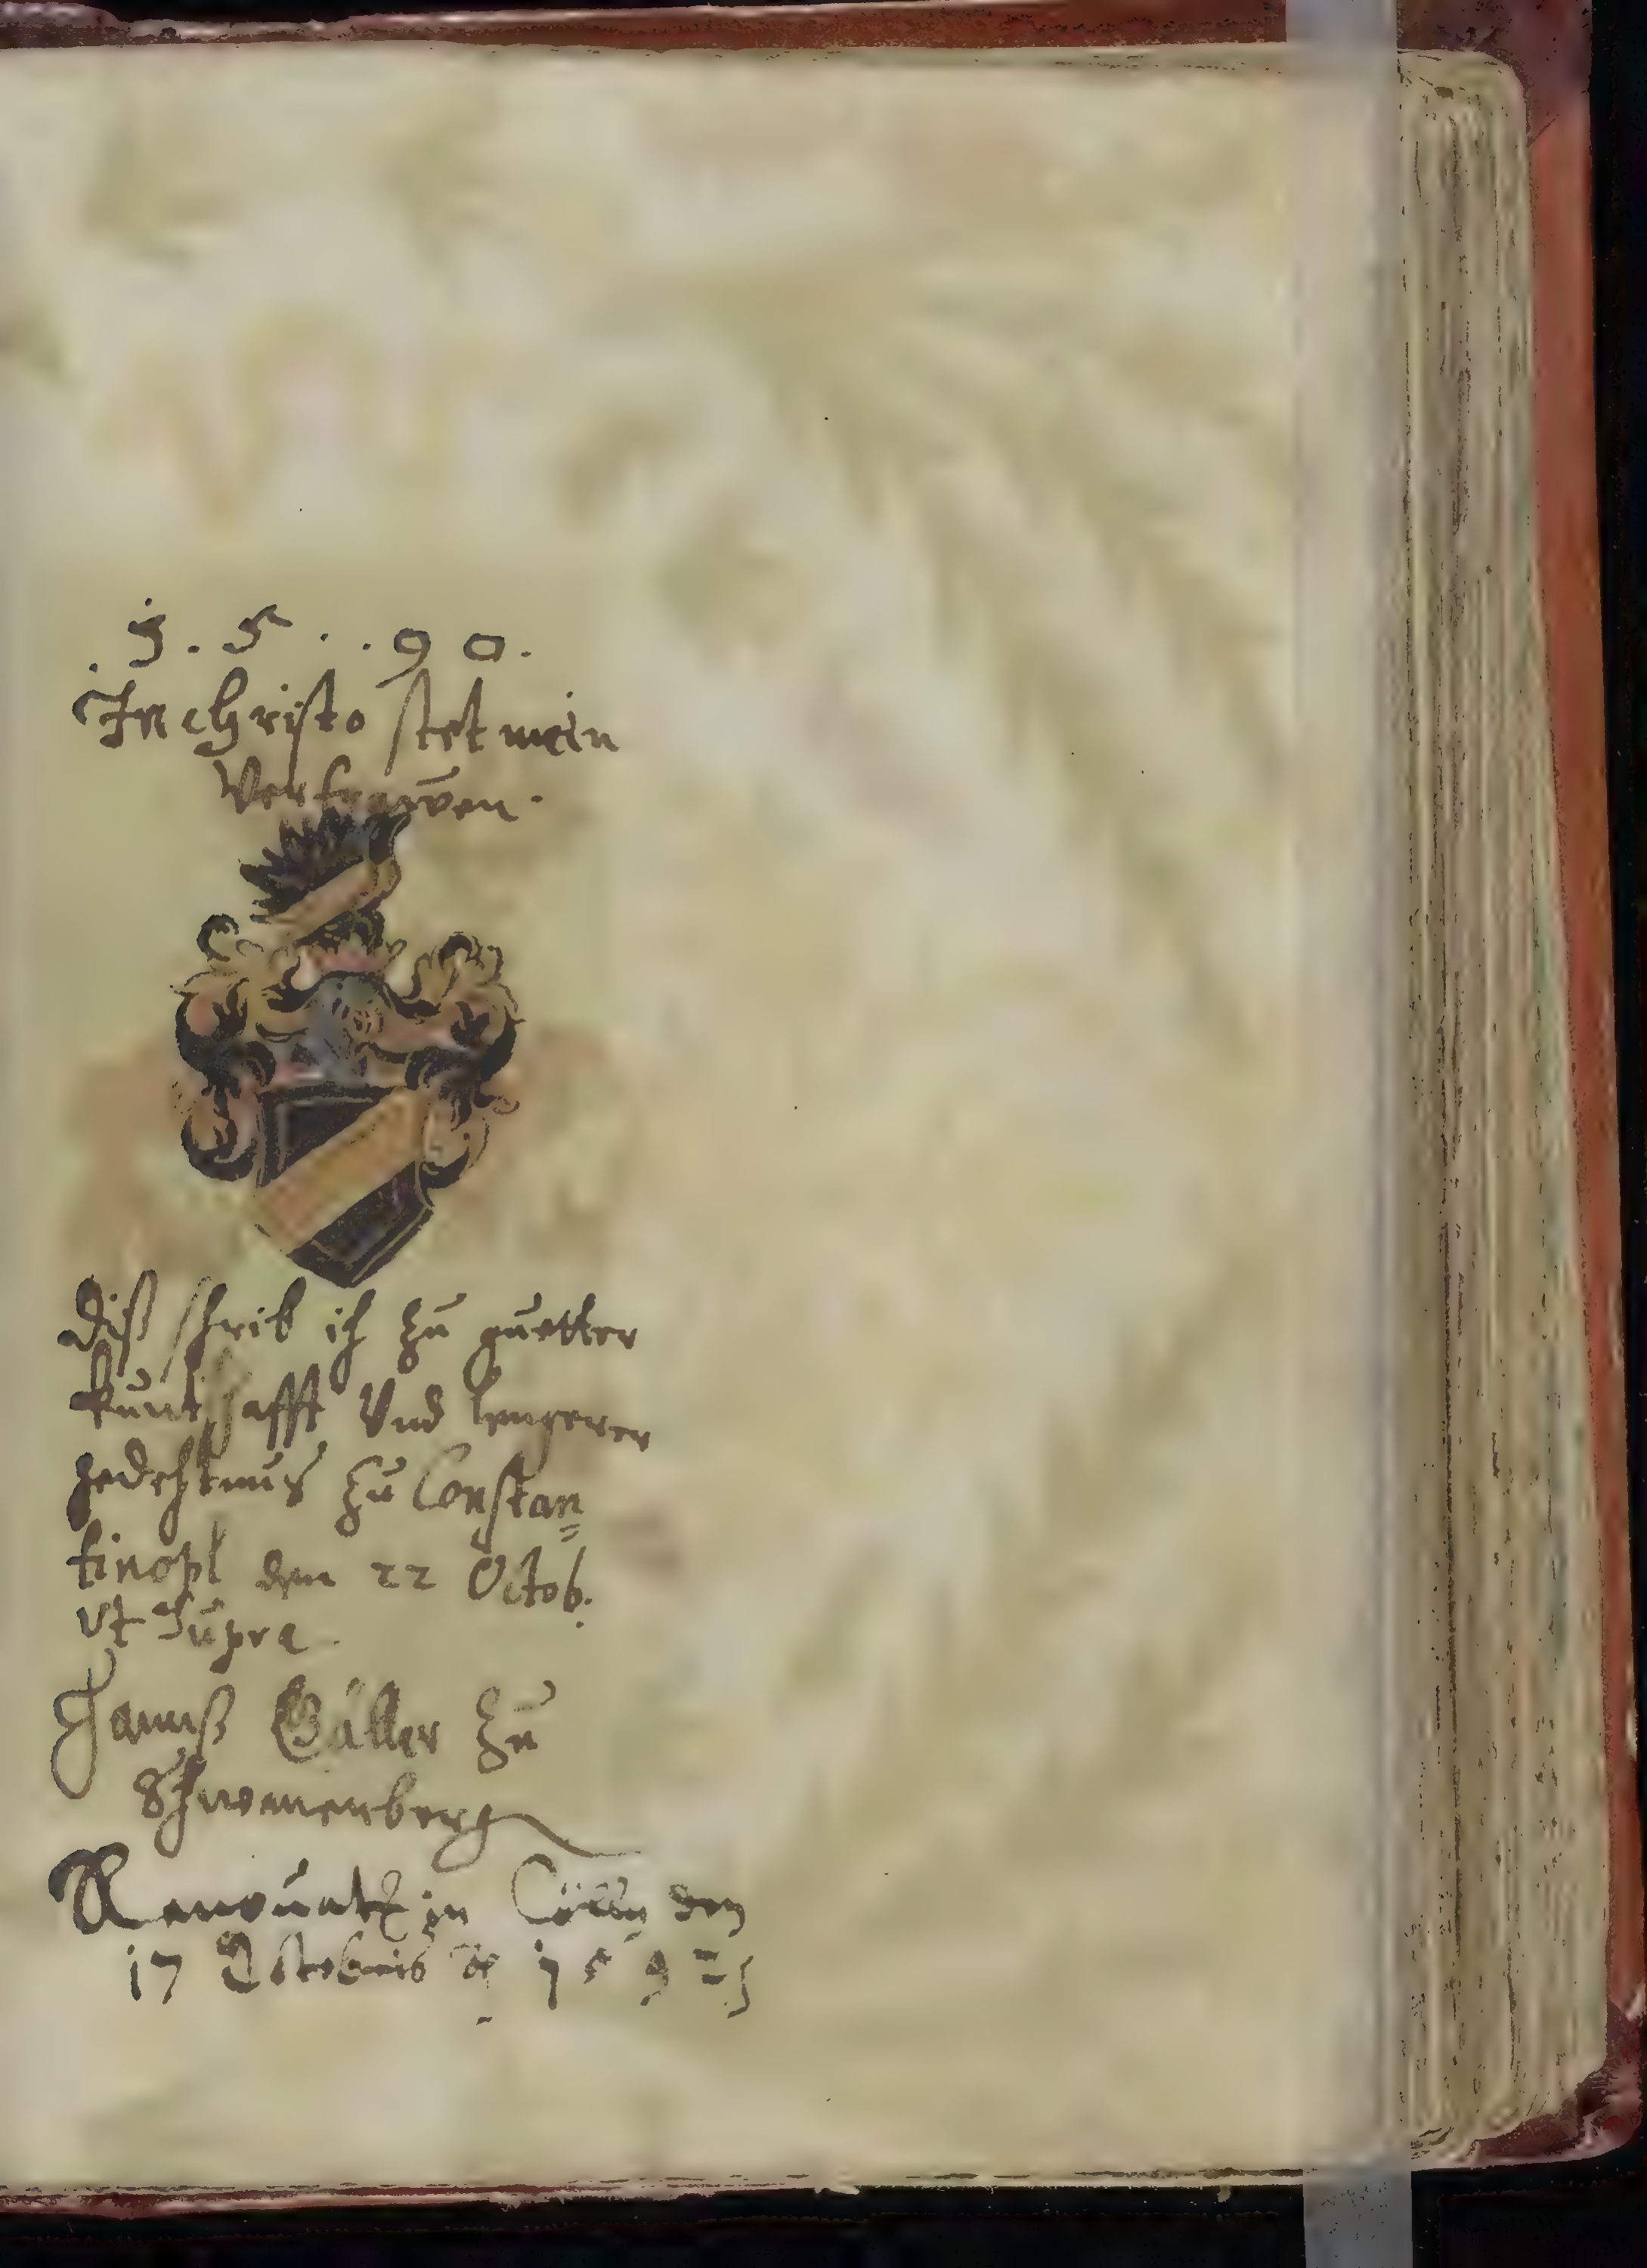 .1.5..90.
In Christo stet mein
Vertrawen.
Diß schrib ich zu guetter
kuntschafft Und lengerer
gedechtnus zu Constan=
tinopl den 22 Octob:
Vt Supra
Hannß Galler zu
Schwanenberg
in Cölln den
17 Octobris